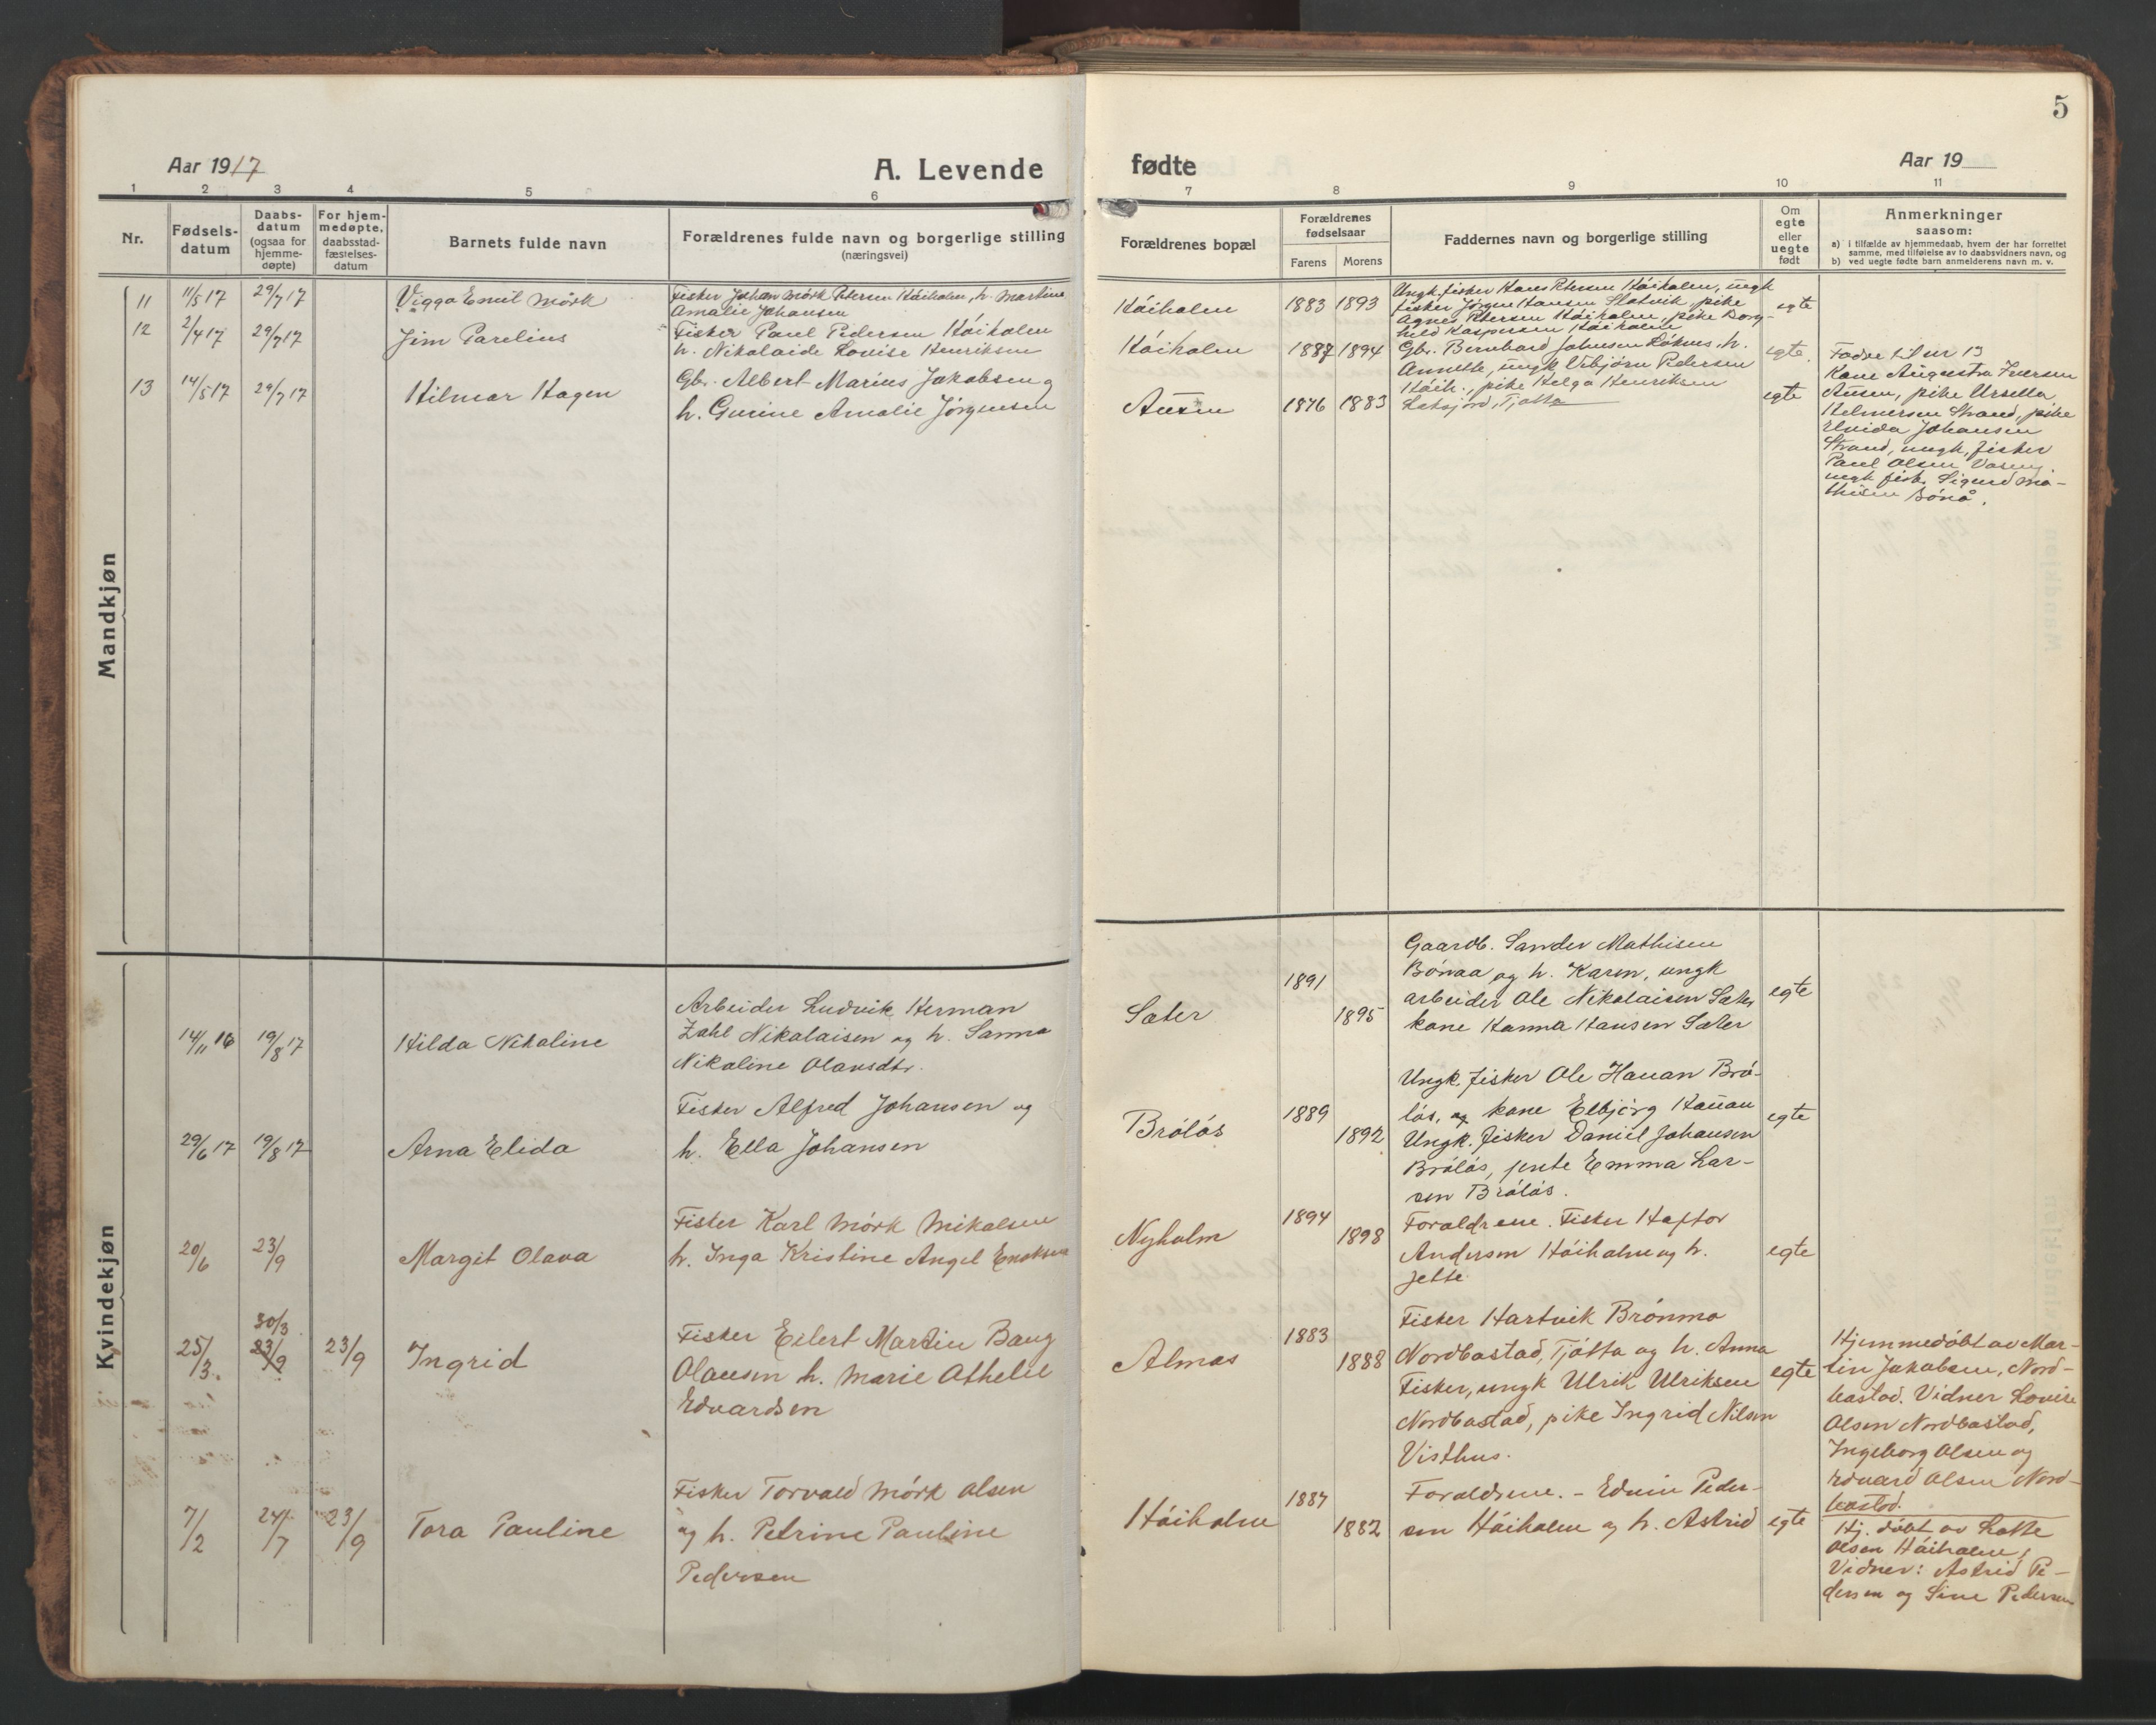 5
Aar 1917
A. Levende
fødte
Aar 19
1 2 3 4 5 6 7 8 9 10 11
Nr.
Fødsels-
datum
Daabs-
datum
(ogsaa for
hjemme-
døpte)
For hjem-
medøpte,
daabsstad-
fæstelses-
datum
Barnets fulde navn
Forældrenes fulde navn og borgerlige stilling
(næringsvei)
Forældrenes bopæl
Forældrenes
fødselsaar
Farens Morens
Faddernes navn og borgerlige stilling
Om
egte
eller
uegte
født
Anmerkninger
saasom:
a) i tilfælde av hjemmedaab, hvem der har forrettet
samme, med tilføielse av to daabsvidners navn, og
b) ved uegte fødte barn anmelderens navn m. v.
Mandkjøn
11 11/5 17 29/7 17 Viggo Emil Mörk
Fisker Johan Mörk Petersen Háiholm, h. Martine
Amalie Johansen
Háiholm 1883 1893
Ungk fisker Hans Petersen Háiholm, ungk
fisker Jørgen Hansen Slotvik, pike
Agnes Petersen Háiholm, pike Borg-
hild Kaspersen Háiholm
egte
12 2/4 17 29/7 17 Jim Parelius
Fisker Paul Pedersen Háiholm
h. Nikolaide Lovise Henriksen
Háiholm 1887 1894
Gbr. Bernhard Johnsen Løknes, h.
Annette, ungk Urbjörn Pedersen
Háih., pike Helga Henriksen
Leksjord, Tjøtta
egte.
13 14/5 17 29/7 17 Hilmar Hagen
Gbr. Albert Marius Jakobsen og
h. Gurine Amalie Jørgensen
Ausen 1876 1883
egte
Fadre til nr 13
Kone Augusta Iversen
Ausen, pike Ursella
Helmersen Strand, pike
Elvida Johansen
Strand, ungk. fisker
Paul Olsen
ungk fisk. Sigurd Ma-
thisen Bönå.
Kvindekjøn
14/11 16 19/8 17 Hilda Nikoline
Arbeider Ludvik Herman
Zahl Nikolaisen og h. Sanna
Nikoline Olausdtr.
Sæter 1891 1895
Gaardb. Sander Mathisen
Bönaa og h. Karen, ungk
arbeider Ole Nikolaisen Sæter
kone Hanna Hansen Sæter
egte
29/6 17 19/8 17 Arna Elida
Fisker Alfred Johansen og
h. Ella Johansen
Bröløs 1889 1892
Ungk. fisker Ole Hauan Brö-
løs, og kone Elbjörg Hauan
Ungk. fisker Daniel Johansen
Bröløs, jente Emma Lar-
sen Bröløs.
egte
20/6 23/9 Margit Olava
Fisker Karl Mörk Mikalsen
h. Inga Kristine Angel Enoksen
Nyholm 1894 1898
Foraldrene. Fisker Haftor
Andersen Háiholm og h.
Jette
egte
25/3. 30/3 23/9 23/9 Ingrid
Fisker Eilert Martin Baug
Olausen h. Marie Athelie
Edvardsen
Almas 1883 1888
Fisker Hartvik Brönmo
Nordbastad, Tjøtta og h. Anna
Fisker, ungk Ulrik Ulriksen
Nordbastad, pike Ingrid Nilsen
Visthus.
egte
Hjemmedöbt av Mar-
tin Jakobsen, Nord-
bastad. Vidner Lovise
Olsen Nordbastad,
Ingeborg Olsen og
Edvard Olsen Nord-
bastad.
7/2 24/7 23/9 Tora Pauline
Fisker Torvald Mörk Olsen
og h. Petrine Pauline
Pedersen
Háiholm 1887 1882
Foraldrene. - Edvin Peder-
sen Háiholm og h. Astrid
egte
Hj. döbt av Lotte
Olsen Háiholm,
Vidner: Astrid Pe-
dersen og Sine Pedersen